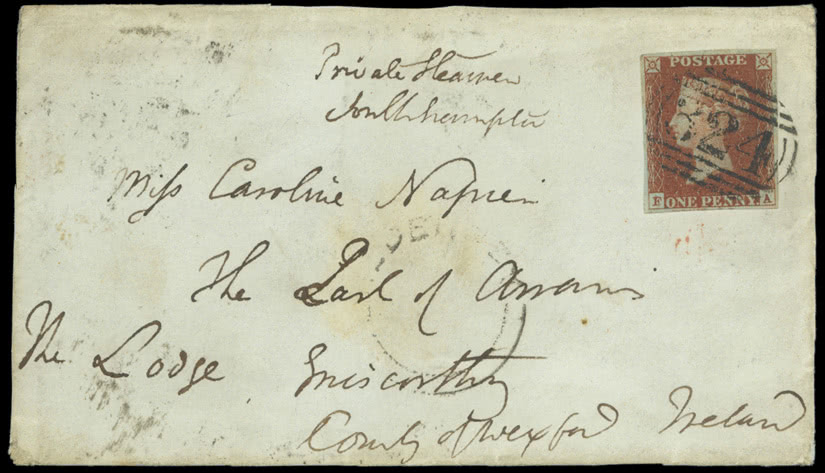 Private Steamer
Southampton
POSTAGE
324
F ONE PENNY A
Miss Caroline Napier
The Earl of Arran's
The Lodge Eniscorthy
County of Wexford Ireland